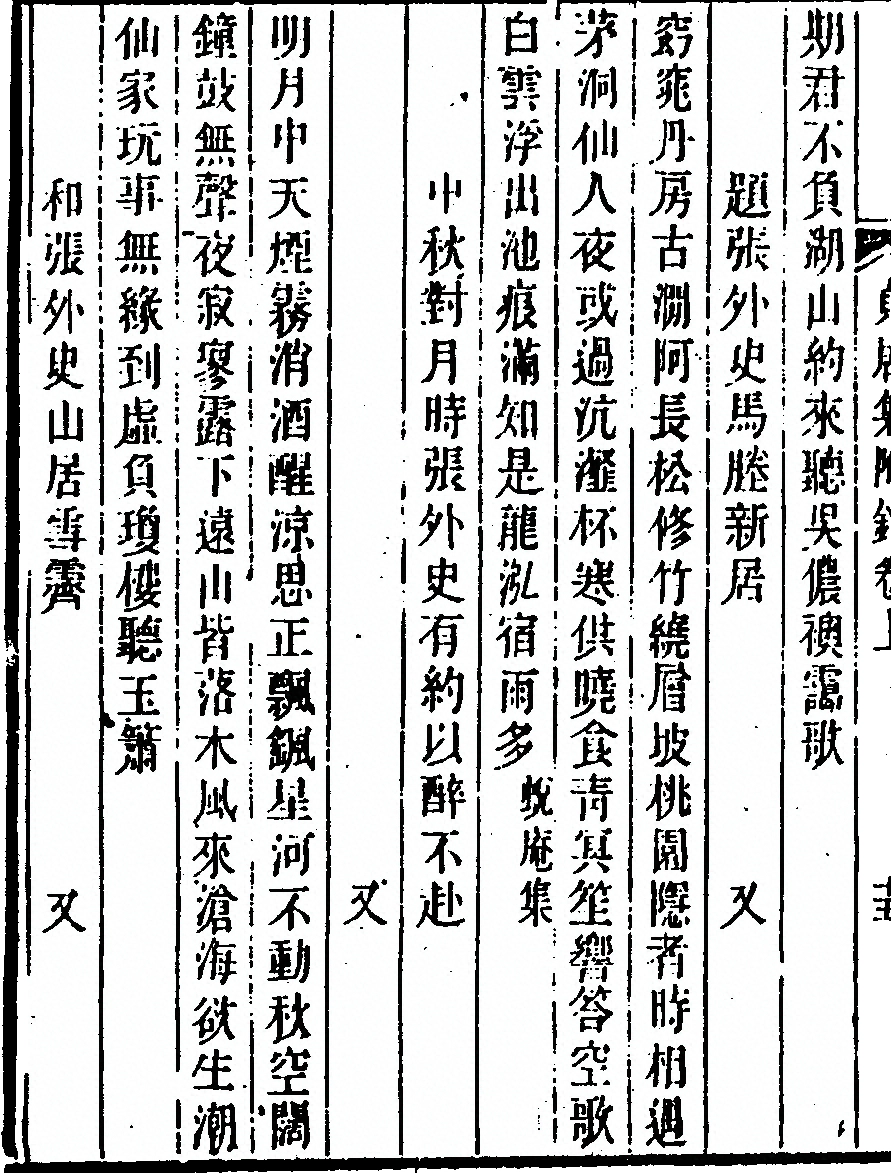 貞居集附錄卷上
期君不負湖山約來聽吳儂襖靄歌
題張外史馬塍新居
又
窈窕丹房古澗阿長松修竹繞層坡桃園隱者時相過
茅洞仙人夜或過沆瀣杯寒供曉食青冥笙響答空歌
白雲浮出池痕滿知是龍泓宿雨多
蛻庵集
中秋對月時張外史有約以醉不赴
又
明月中天煙霧消酒醒涼思正飄颻星河不動秋空闊
鐘鼓無聲夜寂寥露下遠山皆落木風來滄海欲生潮
仙家玩事無緣到虛負瓊樓聽玉簫
和張外史山居雪霽
又